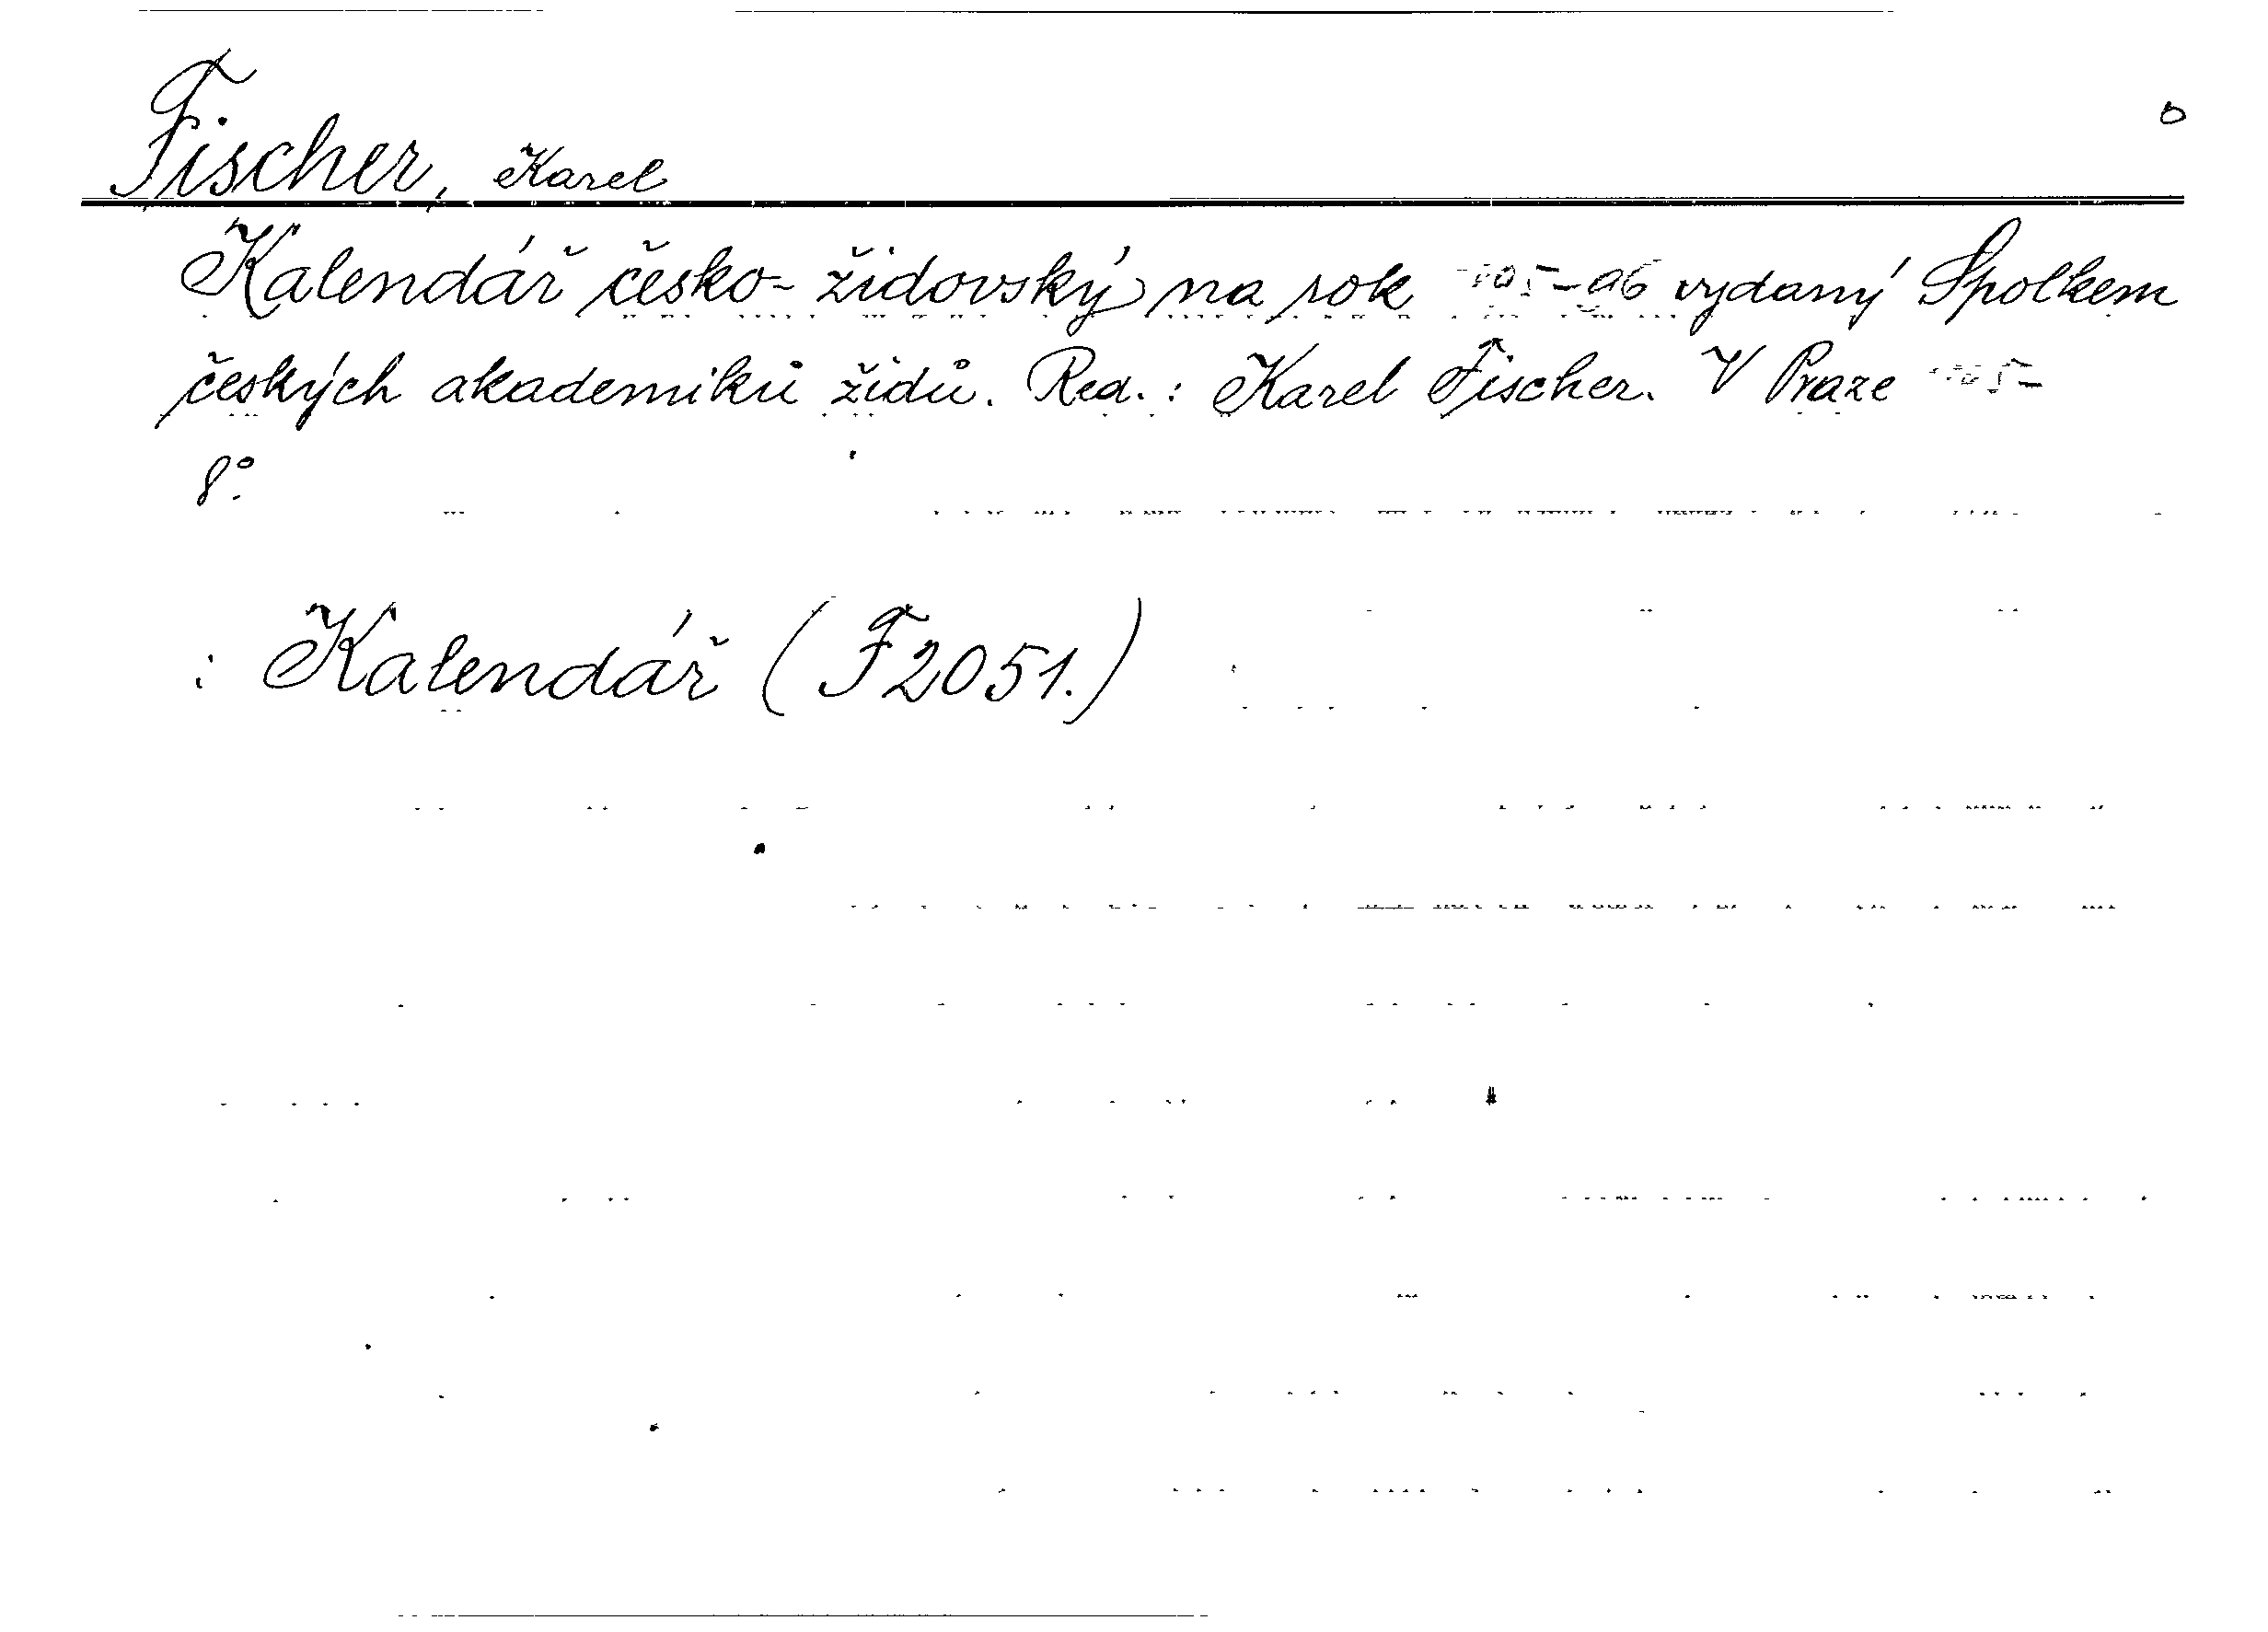 Fischer, Karel
Kalendář česko-židovský na rok vydaný Spolkem
českých akademiků židů. Red.: Karel Fischer. V Praze
8°.
: Kalendář (F2051.)